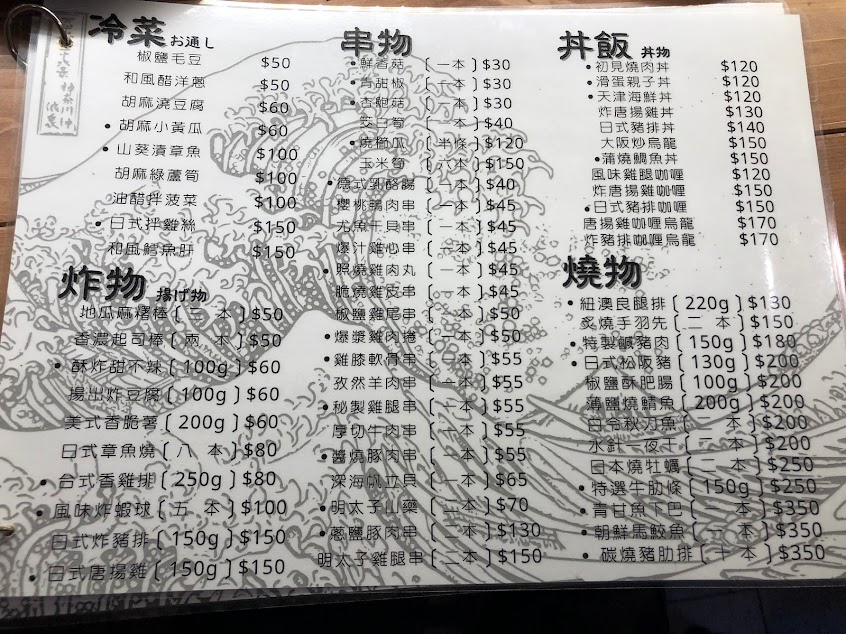 冷菜 お通し
椒鹽毛豆 $50
和風醋洋蔥 $50
胡麻澆豆腐 $60
• 胡麻小黃瓜 $60
• 山葵漬章魚 $100
胡麻綠蘆筍 $100
油醋拌菠菜 $100
• 日式拌雞絲 $150
和風鱈魚肝 $150
炸物 揚げ物
地瓜麻糬棒 〔二本〕 $50
香濃起司棒 〔兩本〕 $50
• 酥炸甜不辣 〔100g〕 $60
揚出炸豆腐 〔100g〕 $60
美式香脆薯 〔200g〕 $60
日式章魚燒 〔八本〕 $80
• 台式香雞排 〔250g〕 $80
• 風味炸蝦球 〔五本〕 $100
日式炸豬排 〔150g〕 $150
• 日式唐揚雞 〔150g〕 $150
串物
• 鮮香菇 〔一本〕 $30
• 青甜椒 〔一本〕 $30
• 杏鮑菇 〔一本〕 $30
茭白筍 〔一本〕 $40
• 燒櫛瓜 〔半條〕 $120
玉米筍 〔六本〕 $150
• 德式乳酪腸 〔一本〕 $40
櫻桃鴨肉串 〔一本〕 $45
尤魚干貝串 〔一本〕 $45
爆汁雞心串 〔一本〕 $45
• 照燒雞肉丸 〔一本〕 $45
脆燒雞皮串 〔一本〕 $45
椒鹽雞尾串 〔一本〕 $50
• 爆漿雞肉捲 〔一本〕 $50
• 雞膝軟骨串 〔一本〕 $55
孜然羊肉串 〔一本〕 $55
• 秘製雞腿串 〔一本〕 $55
厚切牛肉串 〔一本〕 $55
• 醬燒豚肉串 〔一本〕 $55
深海帆立貝 〔一本〕 $65
• 明太子山藥 〔二本〕 $70
• 蔥鹽豚肉串 〔二本〕 $130
明太子雞腿串 〔二本〕 $150
丼飯 丼物
• 初見燒肉丼 $120
• 滑蛋親子丼 $120
• 天津海鮮丼 $120
炸唐揚雞丼 $130
日式豬排丼 $140
大阪炒烏龍 $150
• 蒲燒鯛魚丼 $150
風味雞腿咖喱 $120
炸唐揚雞咖喱 $150
• 日式豬排咖喱 $150
唐揚雞咖喱烏龍 $170
炸豬排咖喱烏龍 $170
燒物
• 紐澳良腿排 〔220g〕 $130
炙燒手羽先 〔二本〕 $150
• 特製鹹豬肉 〔150g〕 $180
• 日式松阪豬 〔130g〕 $200
椒鹽酥肥腸 〔100g〕 $200
薄鹽燒鯖魚 〔200g〕 $200
台令秋刀魚 〔一本〕 $200
水針一夜干 〔二本〕 $200
日本燒牡蠣 〔二本〕 $250
• 特選牛肋條 〔150g〕 $250
• 青甘魚下巴 〔一本〕 $350
• 朝鮮馬鮫魚 〔一本〕 $350
• 碳燒豬肋排 〔十本〕 $350